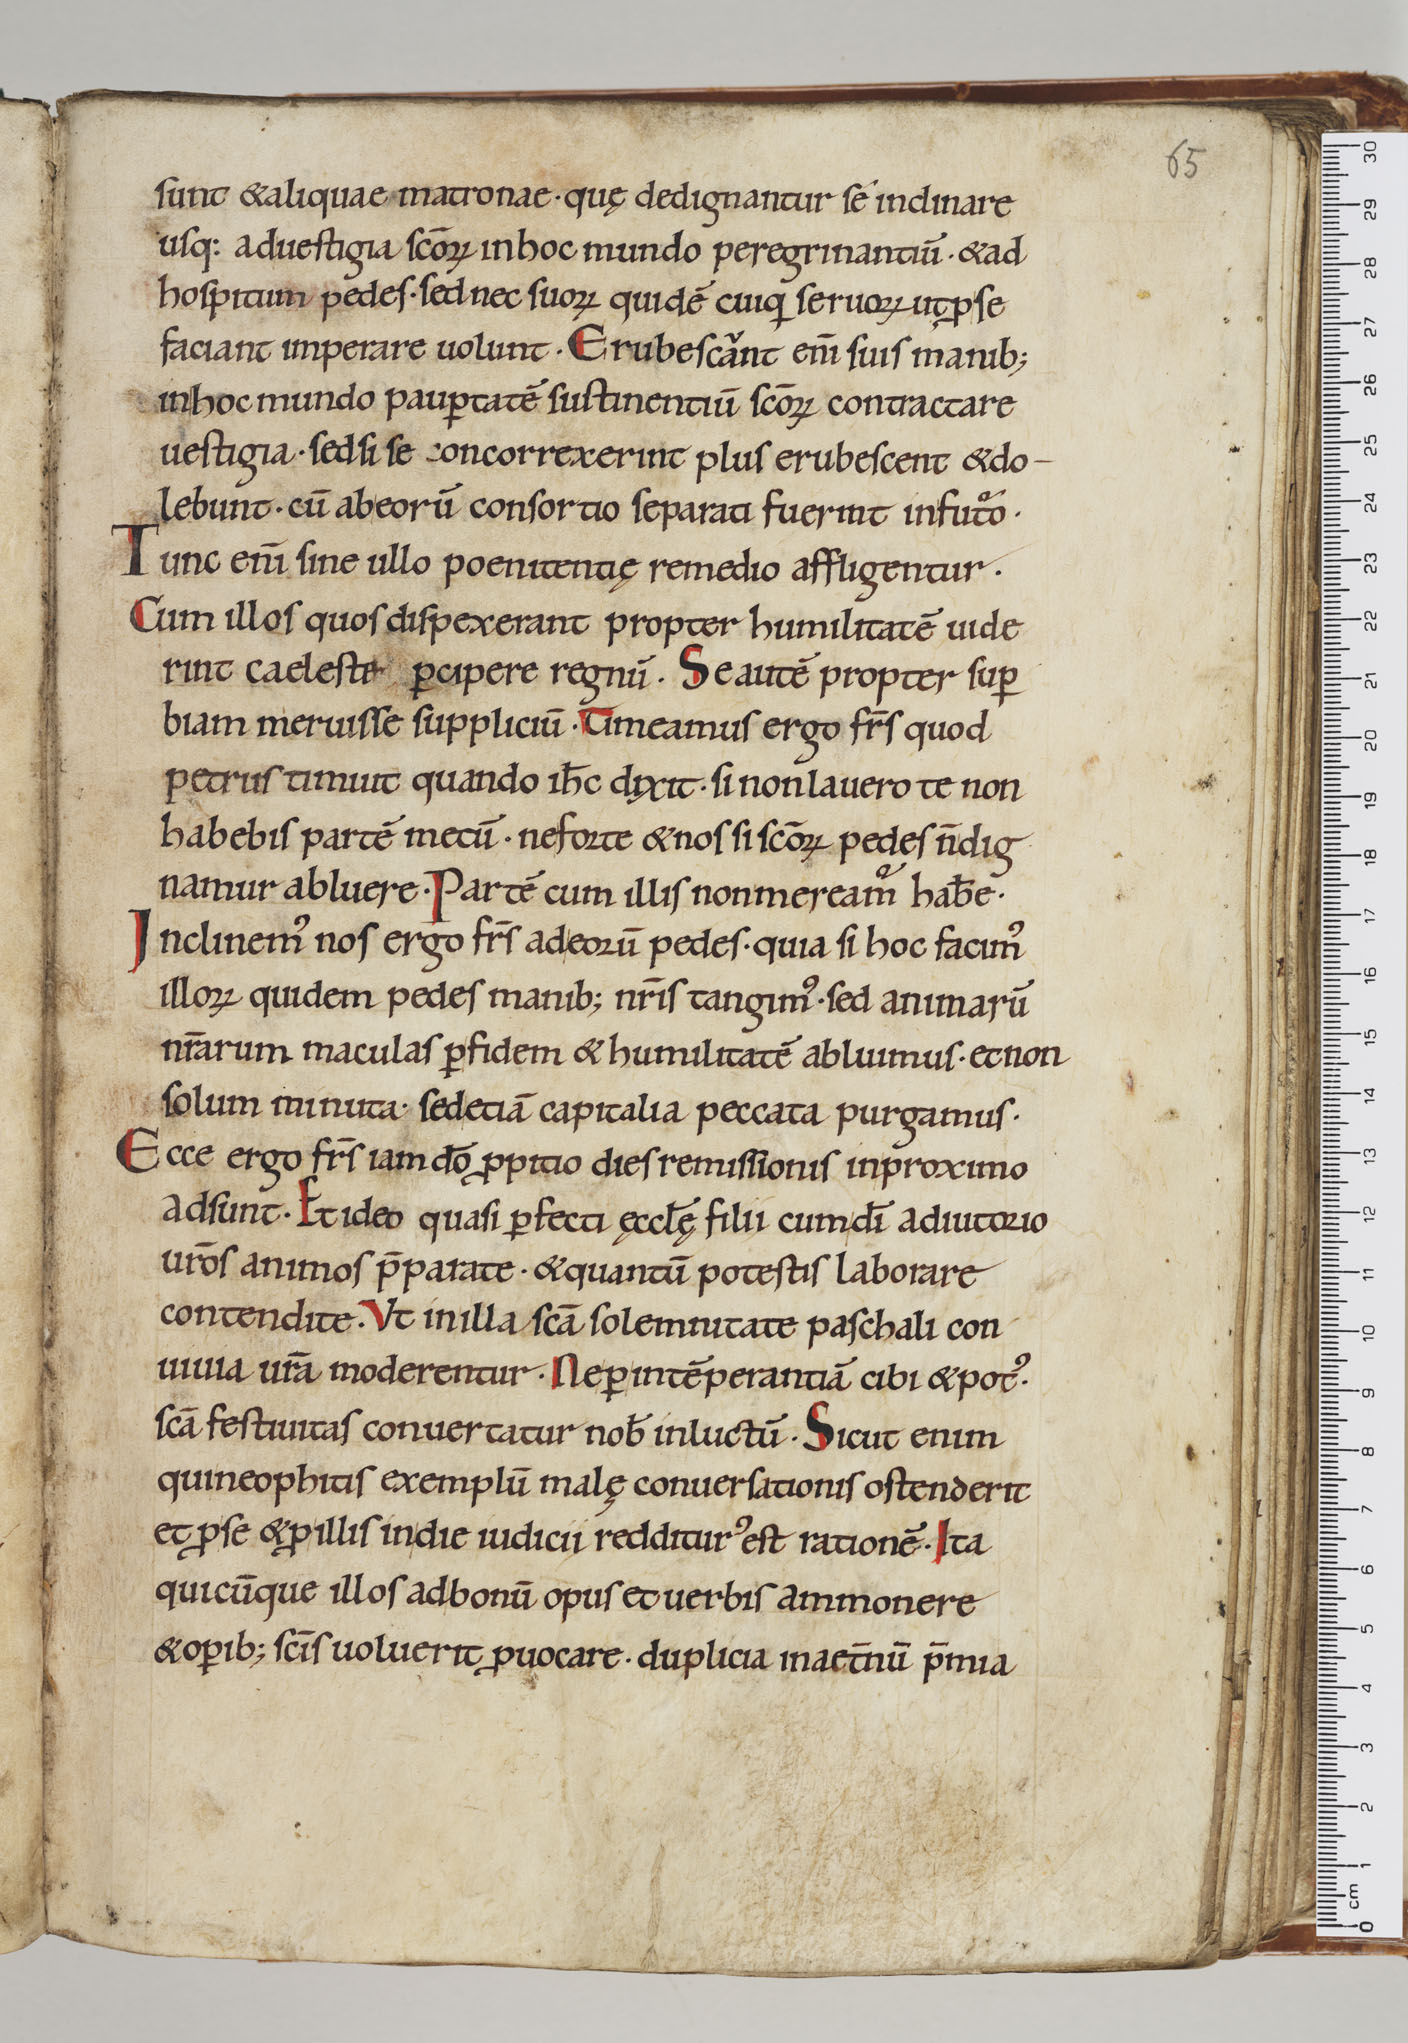 65
sunt &aliquae matronae · quę dedignantur sé inclinare
usq: aduestigia scōꝝ inhoc mundo peregrinantiū · &ad
hospitum pedes · sed nec suoꝝ quidē cuiqͥ seruoꝝ utꝓse
faciant imperare uolunt · Erubescant enī suis manib;
inhoc mundo pauꝑtatē sustinentiū scōꝝ contractare
uestigia · sedsi se concorrexerint plus erubescent &do-
lebunt · cū abeorū consortio separati fuerint infutoͦ ·
Tunc enī sine ullo poenitentię remedio affligentur .
Cum illos quos dispexerant propter humilitatē uide
rint caeleste ꝑcipere regnū . Se autē propter suꝑ
biam meruisse suppliciū · Timeamus ergo fr̄s quod
petrus timuit quando ih̄c dixit · si nonlauero te non
habebis partē mecū · neforte &nos si scōꝝ pedes n̄dig
namur abluere · Partē cum illis nonmereamͦ hab̄e ·
Inclinem᾿ nos ergo fr̄s adeorū pedes · quia si hoc facim᾿
illoꝝ quidem pedes manib; nr̄is tangim᾿ · sed animarū
nr̄arum maculas ꝑfidem &humilitatē abluimus · etnon
solum minuta · sedetiā capitalia peccata purgamus ·
Ecce ergo fr̄s iam dō ꝓpitio dies remissionis inproximo
adsunt · Et ideo quasi ꝑfecti ęccłę filii cumdī adiutorio
ur̄os animos p̄parate · &quantū potestis laborare
contendite . Ut inilla scā solemnitate paschali con
uiuia ur̄a moderentur · Neꝑintēperantiā cibi &pot᾿ ·
scā festiuitas conuertatur nob̄ inluctū · Sicut enim
quineophitis exemplū malę conuersationis ostenderit
et ꝓse &ꝓillis indie iudicii redditur᾿ est rationē · Ita
quicūque illos adbonū opus et uerbis ammonere
&oꝑib; scīs uoluerit ꝓuocare · duplicia inaet̄nū p̄mia